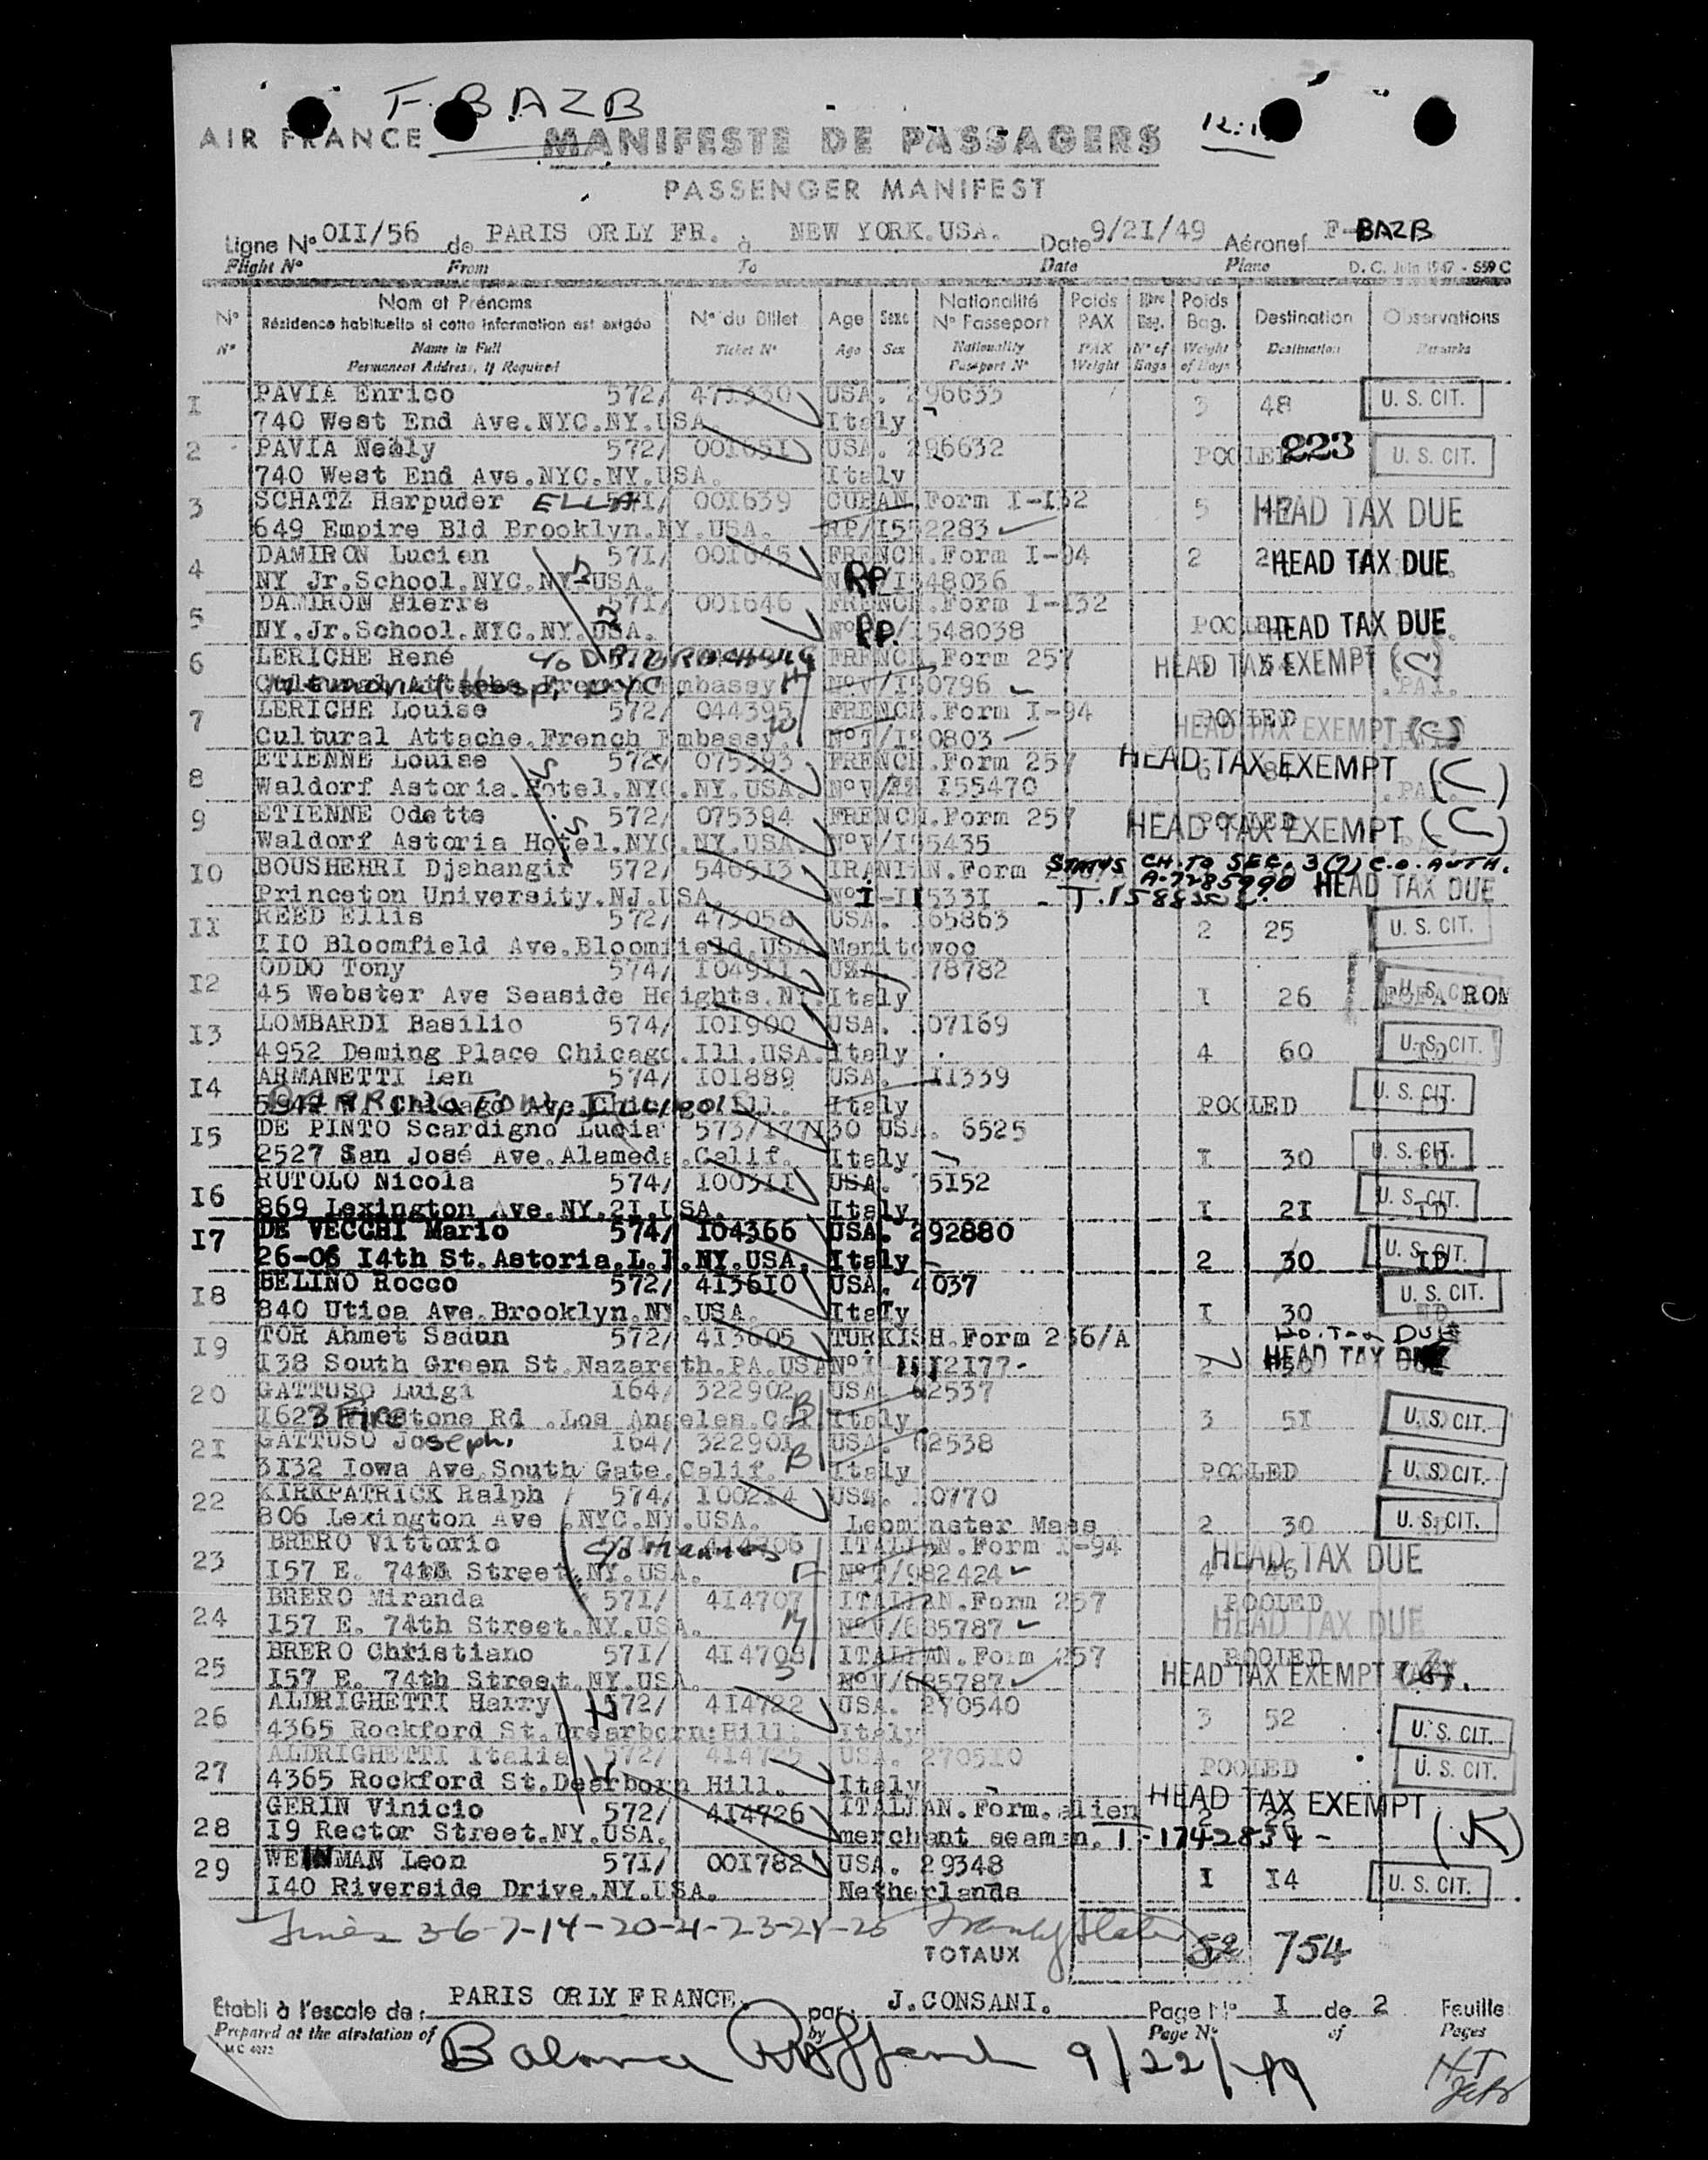 F. BAZB
AIR FRANCE MANIFESTE DE PASSAGERS
PASSENGER MANIFEST
Ligne N° OII/56 de PARIS ORLY FR. à NEW YORK.USA. Date 9/2I/49 Aéronef F-BAZB
Flight N° From To Date Plane D.C. Juin 1947 - 559 C
N° Nom et Prénoms N° du Billet Age Sexe Nationalité Poids Nbre Poids Destination Observations
Résidence habituelle si cette information est exigée N° Passeport PAX Bag. Bag.
N° Name in Full Ticket N° Age Sex Nationality PAX N° of Weight Destination Remarks
Permanent Address, if Required Passport N° Weight Bags of Bags
I PAVIA Enrico 572/ USA. 296635 3 48 U. S. CIT.
740 West End Ave.NYC.NY.USA. Italy
2 PAVIA Nelly 572/ 001651 USA. 296632 POOLED 223 U. S. CIT.
740 West End Ave.NYC.NY.USA. Italy
3 SCHATZ Harpuder ELLA 571/ 001639 CUBAN.Form I-132 5 HEAD TAX DUE
649 Empire Bld Brooklyn.NY.USA. RP/1552283
4 DAMIRON Lucien 571/ 001645 FRENCH.Form I-94 2 HEAD TAX DUE
NY Jr.School.NYC.NY.USA. RP/1548036
5 DAMIRON Pierre 571/ 001646 FRENCH.Form I-132 POOLED HEAD TAX DUE
NY.Jr.School.NYC.NY.USA. N° RP./1548038
6 LERICHE René c/o DR. FRENCH.Form 257 HEAD TAX EXEMPT (C)
Cultural Attache.French Embassy Memorial Hosp, NYC N°V/I50796
7 LERICHE Louise 572/ 044395 FRENCH.Form I-94 POOLED HEAD TAX EXEMPT (C)
Cultural Attache.French Embassy. N°T/I50803
8 ETIENNE Louise 572/ 075393 FRENCH.Form 257 HEAD TAX EXEMPT (C)
Waldorf Astoria.Hotel.NYC.NY.USA. N°V/ I55470
9 ETIENNE Odette 572/ 075394 FRENCH.Form 257 POOLED HEAD TAX EXEMPT (C)
Waldorf Astoria Hotel.NYC.NY.USA. N°V/I55435
IO BOUSHEHRI Djahangir 572/ 546513 IRANIAN.Form STATUS CH. TO SEC. 3(7) C.O. AUTH.
Princeton University.NJ.USA. N° I-115331 A-7285990 HEAD TAX DUE
II REED Ellis 572/ 473058 USA. 165863 2 25 U. S. CIT.
IIO Bloomfield Ave.Bloomfield.USA Manitowoc
I2 ODDO Tony 574/ 104911 USA. 178782 I 26 U. S. CIT. ROM
45 Webster Ave Seaside Heights.NJ. Italy
I3 LOMBARDI Basilio 574/ IOI900 USA. 107169 4 60 U. S. CIT.
4952 Deming Place Chicago.Ill.USA. Italy
I4 ARMANETTI Len 574/ IOI889 USA. 11339 POOLED U. S. CIT.
Chicago Ave.Chicago.Ill. Italy
I5 DE PINTO Scardigno Lucia 573/177130 USA. 6525 I 30 U. S. CIT.
2527 San José Ave.Alameda.Calif. Italy
I6 RUTOLO Nicola 574/ 100311 USA. 15152 I 2I U. S. CIT.
869 Lexington Ave.NY.2I.USA. Italy
I7 DE VECCHI Mario 574/ 104366 USA. 292880 2 30 U. S. CIT.
26-06 I4th St.Astoria.L.I.NY.USA. Italy
I8 BELINO Rocco 572/ 413610 USA. 4037 I 30 U. S. CIT.
840 Utica Ave.Brooklyn.NY.USA. Italy
I9 TOR Ahmet Sadun 572/ 413605 TURKISH.Form 256/A HD. Tax DUE
I38 South Green St.Nazareth.PA.USA HEAD TAX DUE
20 GATTUSO Luigi 164/ 322902 USA. 62537 3 5I U. S. CIT.
I623 Firestone Rd .Los Angeles.Cal Italy
2I GATTUSO Joseph. 164/ 322901 USA. 62538 POOLED U. S. CIT.
3I32 Iowa Ave.South Gate.Calif. Italy
22 KIRKPATRICK Ralph 574/ 100214 USA. 10770 2 30 U. S. CIT.
806 Lexington Ave .NYC.NY.USA. Leominster Mass
23 BRERO Vittorio c/o ITALIAN.Form I-94 4 46 HEAD TAX DUE
I57 E. 74th Street.NY.USA. N°T/982424
24 BRERO Miranda 571/ 414707 ITALIAN.Form 257 POOLED HEAD TAX DUE
I57 E. 74th Street.NY.USA. N°V/685787
25 BRERO Christiano 571/ 414708 ITALIAN.Form 257 POOLED HEAD TAX EXEMPT
I57 E. 74th Street.NY.USA. N°V/685787
26 ALDRIGHETTI Harry 572/ 414722 USA. 270540 3 52 U. S. CIT.
4365 Rockford St.Drearborn:Hill. Italy
27 ALDRIGHETTI Italia 572/ USA. 270510 POOLED U. S. CIT.
4365 Rockford St.Dearborn Hill. Italy
28 GERIN Vinicio 572/ 414726 ITALIAN.Form.alien HEAD TAX EXEMPT (K)
I9 Rector Street.NY.USA. merchant seaman. T-1742834-
29 WEINMAN Leon 571/ 001782 USA. 29348 I I4 U. S. CIT.
I40 Riverside Drive.NY.USA. Netherlands
Lines 3-6-7-14-20-21-23-24-25
TOTAUX 52 754
Établi à l'escale de: PARIS ORLY FRANCE. par: J.CONSANI. Page N° I de 2 Feuille
Prepared at the airstation of by Page N° of Pages
MC 4073
9/22/49